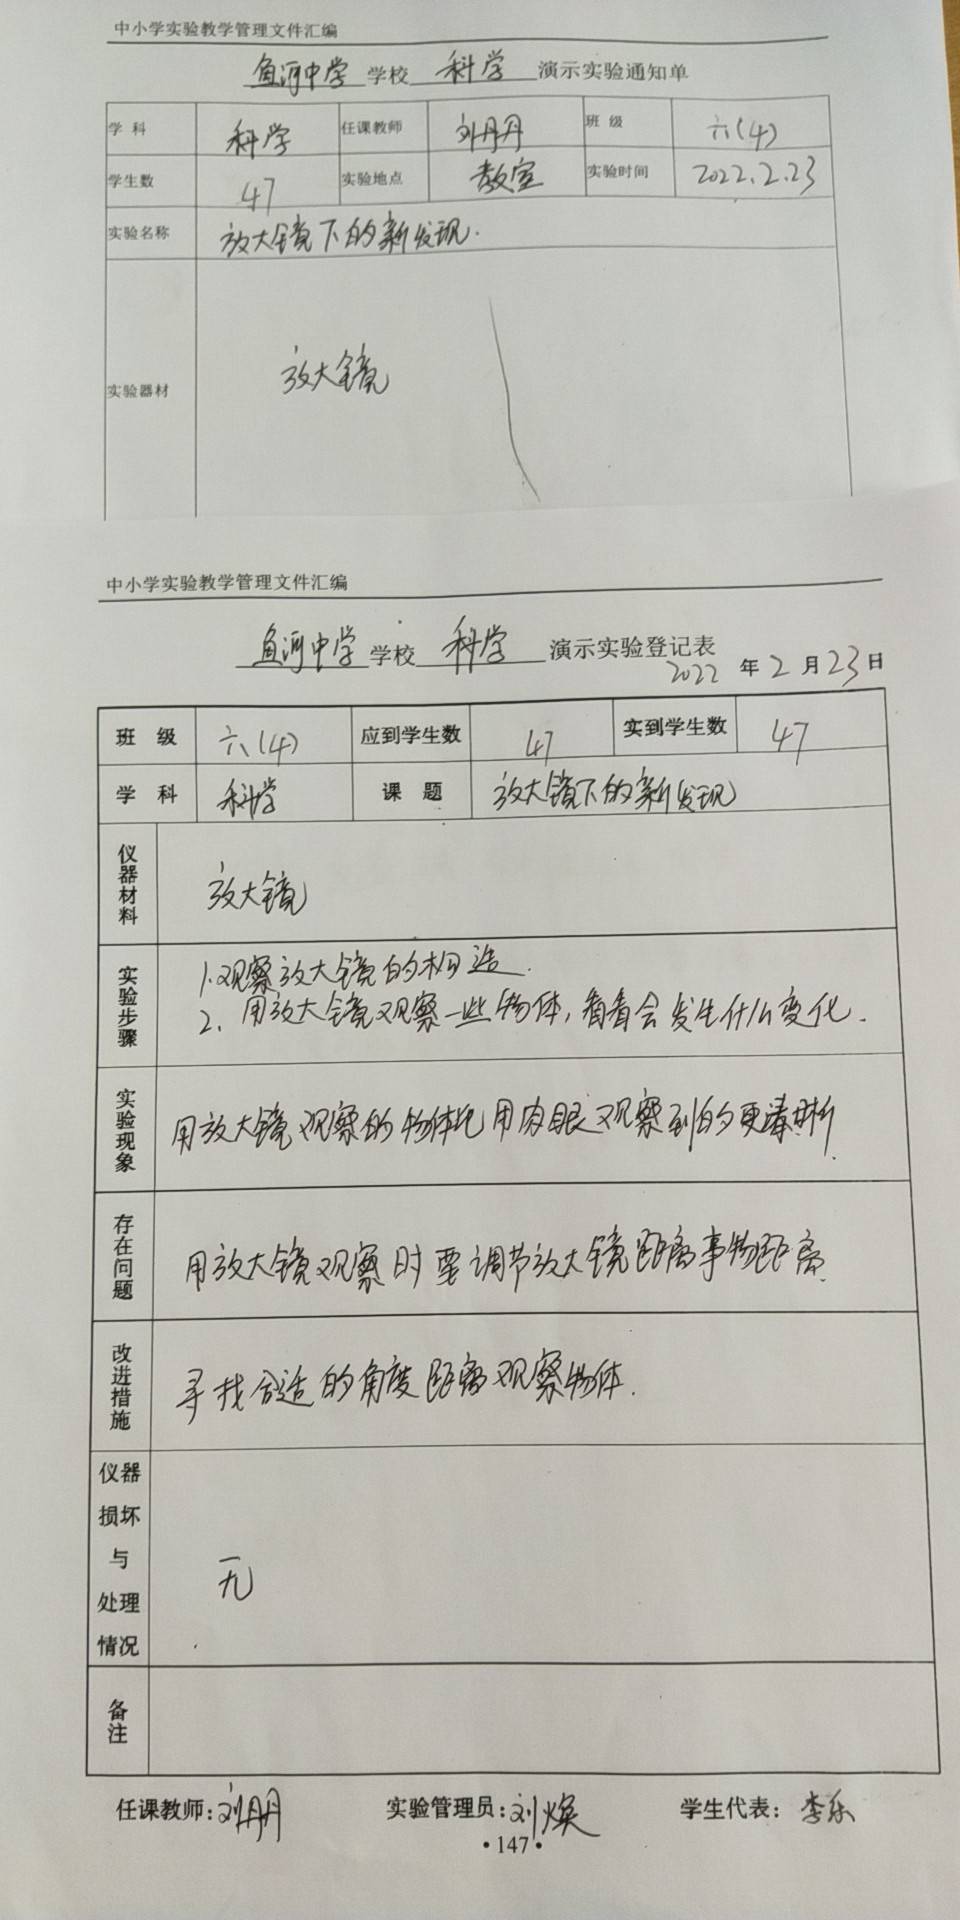 中小学实验教学管理文件汇编
鱼河中学 学校 科学 演示实验通知单
学 科 科学 任课教师 刘丹丹 班 级 六(4)
学生数 47 实验地点 教室 实验时间 2022.2.23
实验名称 放大镜下的新发现.
实验器材 放大镜
中小学实验教学管理文件汇编
鱼河中学 学校 科学 演示实验登记表
2022 年 2 月 23 日
班 级 六(4) 应到学生数 47 实到学生数 47
学 科 科学 课 题 放大镜下的新发现
仪器材料 放大镜
实验步骤 1.观察放大镜的构造.
2、用放大镜观察一些物体,看看会发生什么变化.
实验现象 用放大镜观察的物体比用肉眼观察到的更清晰.
存在问题 用放大镜观察时要调节放大镜距离事物距离.
改进措施 寻找合适的角度距离观察物体.
仪器损坏与处理情况 无
备注
任课教师:刘丹丹 实验管理员:刘焕 学生代表:李乐
·147·